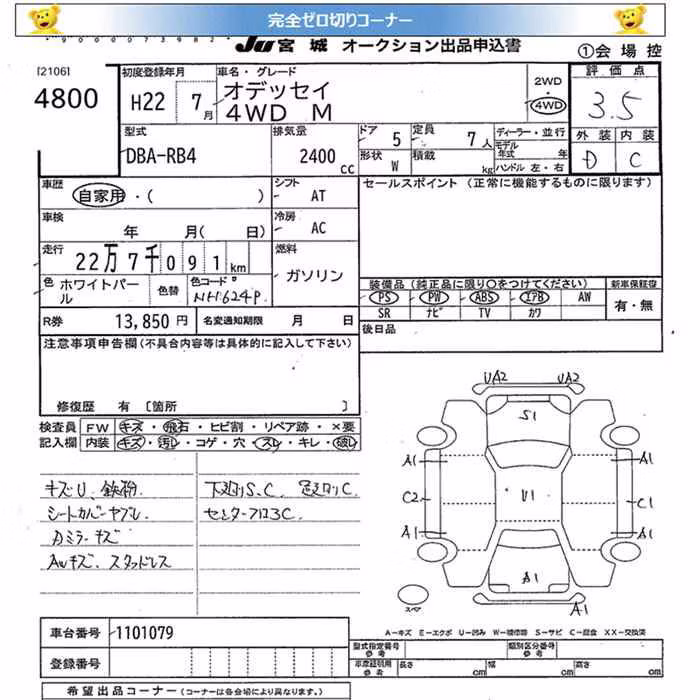 完全ゼロ切りコーナー
Ju 宮城 オークション出品申込書
①会場控
[2106]
4800
初度登録年月
H22 7月
車名・グレード
オデッセイ
4WD M
2WD
・
4WD
評価点
3.5
外装 内装
D C
型式
DBA-RB4
排気量
2400 cc
ドア 5
定員 7人
形状 W
積載 kg
ディーラー・並行
モデル年式 年
ハンドル 左・右
車歴
自家用・( )
シフト
AT
セールスポイント (正常に機能するものに限ります)
車検
年 月( 日)
冷房
AC
走行
22万7千091km
燃料
ガソリン
色 ホワイトパール
色替
色コード
NH624P
装備品 (純正品に限り○をつけてください)
新車保証書
PS PW ABS エアB AW
SR ナビ TV カワ
有・無
R券 13,850円
名変通知期限 月 日
後日品
注意事項申告欄(不具合内容等は具体的に記入して下さい)
修復歴 有 〔箇所 〕
検査員記入欄
FW キズ・飛石・ヒビ割・リペア跡・×要
内装 キズ・汚レ・コゲ・穴・スレ・キレ・破レ
キズU、鉄粉
シートカバーヤブレ
Dミラーキズ
AWキズ、スタッドレス
下廻りS、C 足廻りC
センターフロアC
UA2 UA2
S1
A1 A1
C2 U1 C1
A1 A1
A1
A1
スペア
A－キズ E－エクボ U－凹み W－補修跡 S－サビ C－腐食 XX－交換済
車台番号 1101079
登録番号
型式指定番号 参考
類別区分番号 参考
車庫証明用 参考
長さ cm 幅 cm 高さ cm
希望出品コーナー (コーナーは各会場により異なります。)